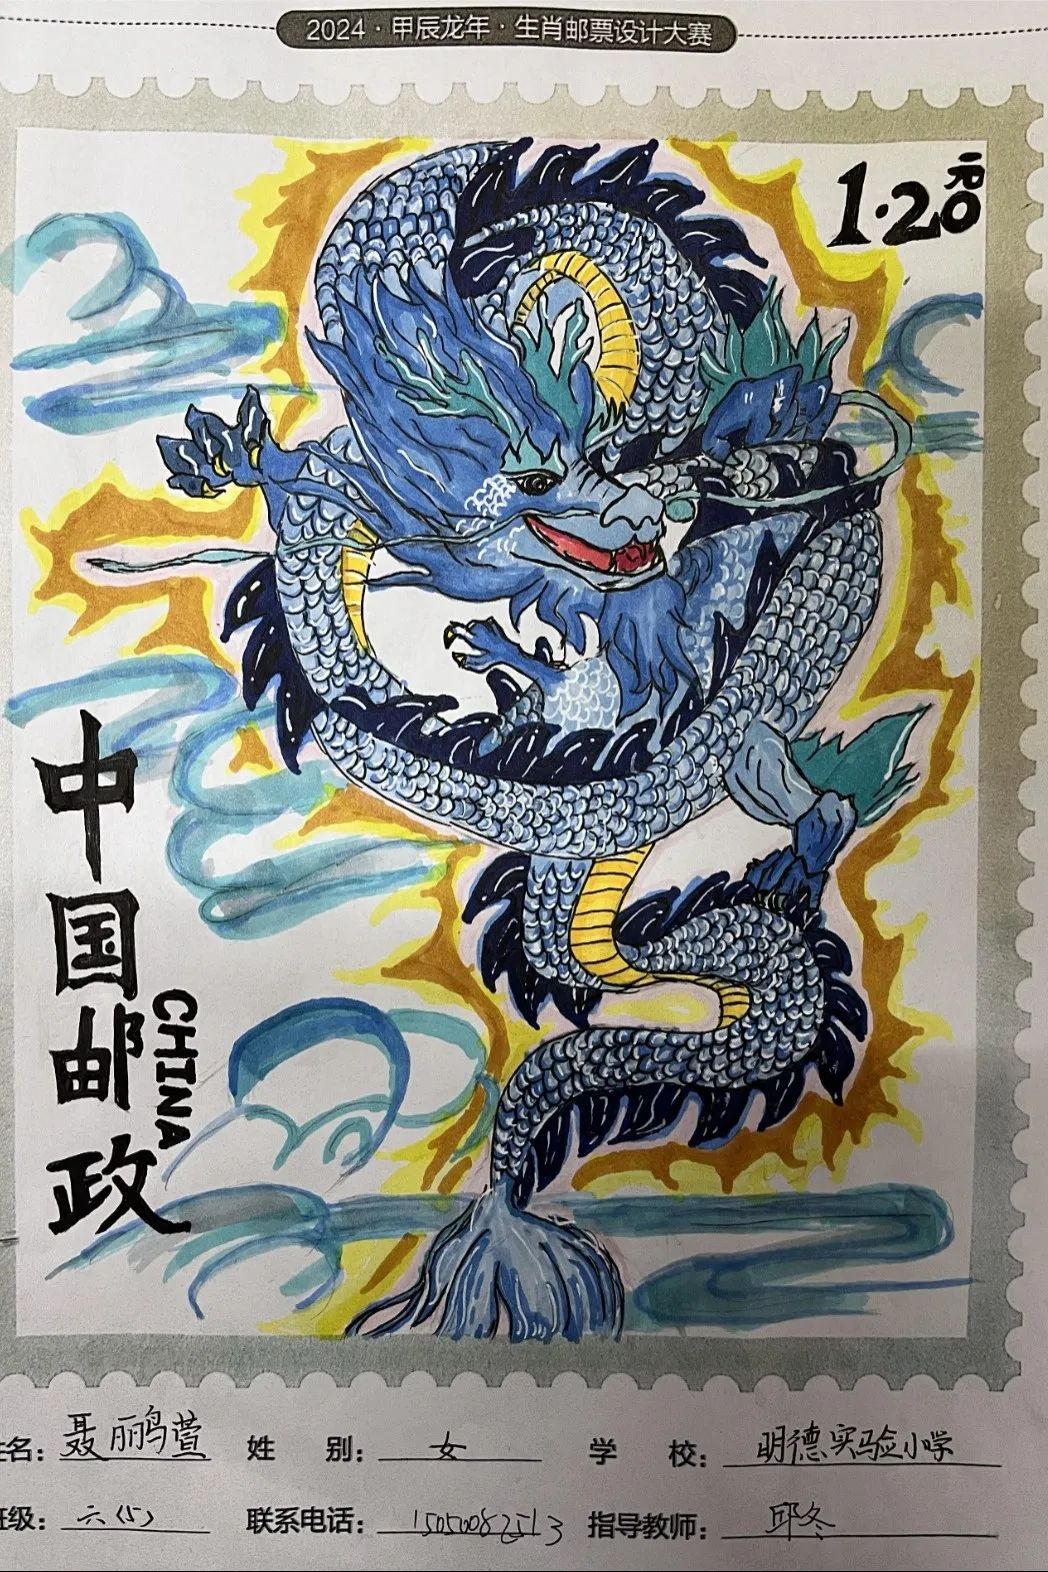 2024·甲辰龙年·生肖邮票设计大赛
1.20
中国邮政
CHINA
姓名：聂丽鹏萱 姓 别：女 学 校：明德实验小学
班级：六（5） 联系电话：15050082513 指导教师：邱冬